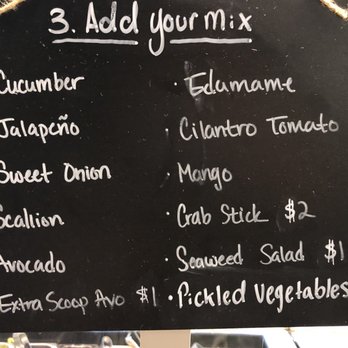 3. Add your mix
Cucumber
Jalapeño
Sweet Onion
Scallion
Avocado
Extra Scoop Avo $1
· Edamame
· Cilantro Tomato
· Mango
· Crab Stick $2
· Seaweed Salad $1
· Pickled Vegetables